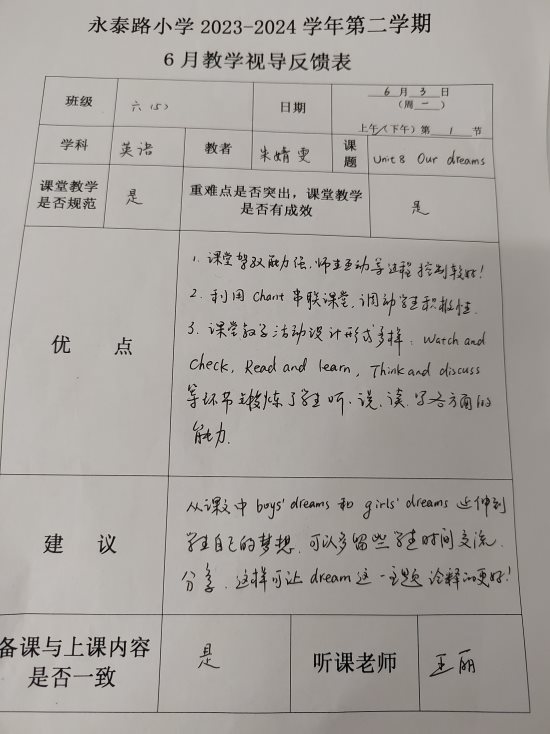 永泰路小学 2023-2024 学年第二学期
6 月教学视导反馈表
班级 六(5) 日期 6 月 3 日
(周 一 )
上午/(下午) 第 1 节
学科 英语 教者 朱婧雯 课题 Unit 8 Our dreams
课堂教学是否规范 是 重难点是否突出，课堂教学是否有成效 是
优 点
1. 课堂驾驭能力强，师生互动等过程控制较好！
2. 利用 Chant 串联课堂，调动学生积极性.
3. 课堂教学活动设计形式多样：Watch and
Check, Read and learn, Think and discuss
等环节锻炼了学生听、说、读、写各方面的
能力.
建 议
从课文中 boys' dreams 和 girls' dreams 延伸到
学生自己的梦想，可以多留些学生时间交流、
分享，这样可让 dream 这一主题诠释的更好！
备课与上课内容是否一致 是 听课老师 王丽